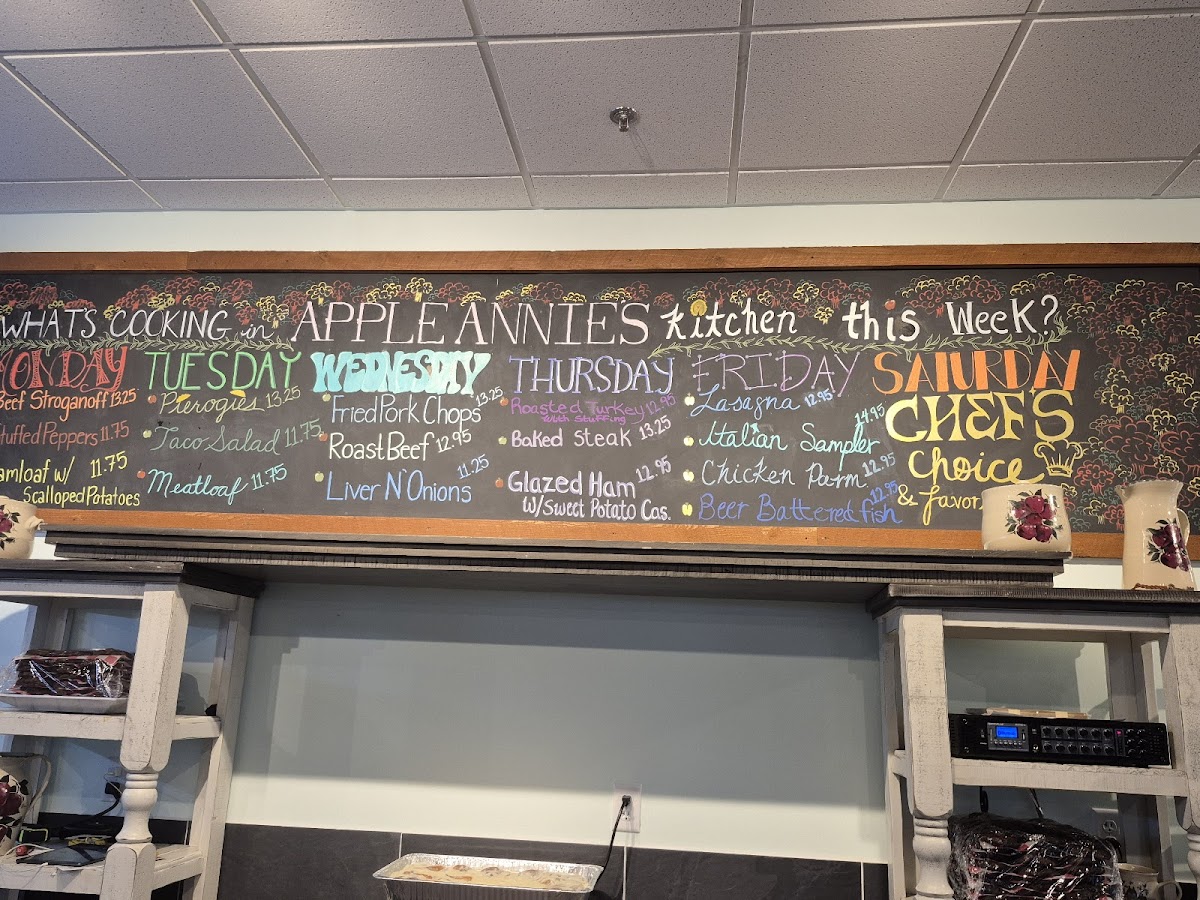 WHAT'S COOKING in APPLE ANNIE'S kitchen this Week?
MONDAY
Beef Stroganoff 13.25
Stuffed Peppers 11.75
amloaf w/ 11.75
Scalloped Potatoes
TUESDAY
Pierogies 13.25
Taco Salad 11.75
Meatloaf 11.75
WEDNESDAY
Fried Pork Chops 13.25
Roast Beef 12.95
Liver N' Onions 11.25
THURSDAY
Roasted Turkey 12.95
with stuffing
Baked Steak 13.25
Glazed Ham 12.95
W/Sweet Potato Cas.
FRIDAY
Lasagna 12.95
Italian Sampler 14.95
Chicken Parm. 12.95
Beer Battered fish 12.95
SATURDAY
CHEF'S
Choice
& Favor